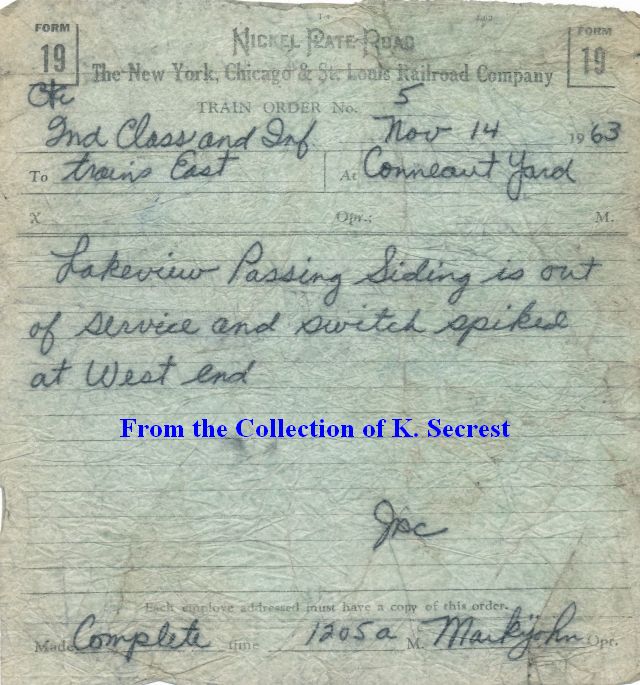 FORM 19 NICKEL PLATE ROAD FORM 19
The New York, Chicago & St. Louis Railroad Company
TRAIN ORDER No. 5
2nd Class and Inf Nov 14 1963
To trains East At Conneaut Yard
X Opr.; M.
Lakeview Passing Siding is out
of service and switch spiked
at West end
From the Collection of K. Secrest
JPC
Each employe addressed must have a copy of this order.
Made Complete time 1205a M. Markijohn Opr.